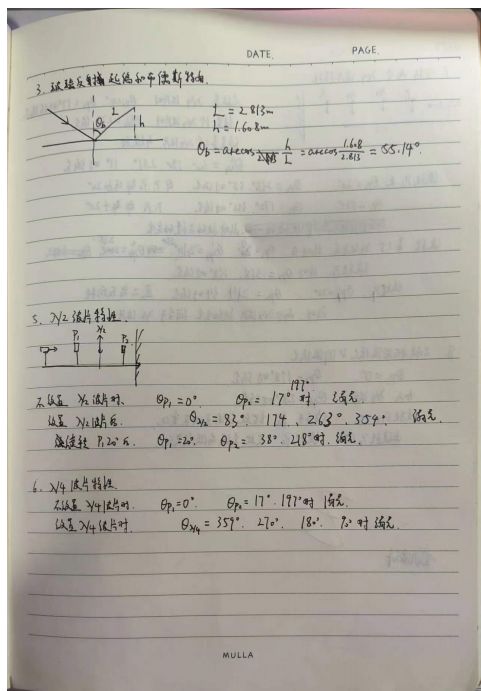 DATE. PAGE.
3. 玻璃反射偏起偏和布儒斯特角.
L = 2.813m
θb L h
h = 1.608m
θb = arccos h/L = arccos 1.608/2.813 = 55.14°.
5. λ/2 波片特性.
P1 λ/2 P2
197°
不放置 λ/2 波片时. θP1 = 0° θP2 = 17° 时 消光.
放置 λ/2 波片后. θλ/2 = 83° 174、263°. 354° 消光.
继续转 P1 20° 后. θP1 = 20° θP2 = 38° 218° 时. 消光.
6. λ/4 波片特性.
不放置 λ/4 波片时. θP1 = 0°. θP2 = 17°. 197° 时 消光.
放置 λ/4 波片时. θλ/4 = 359°. 270°. 180°. 90° 时 消光.
MULLA